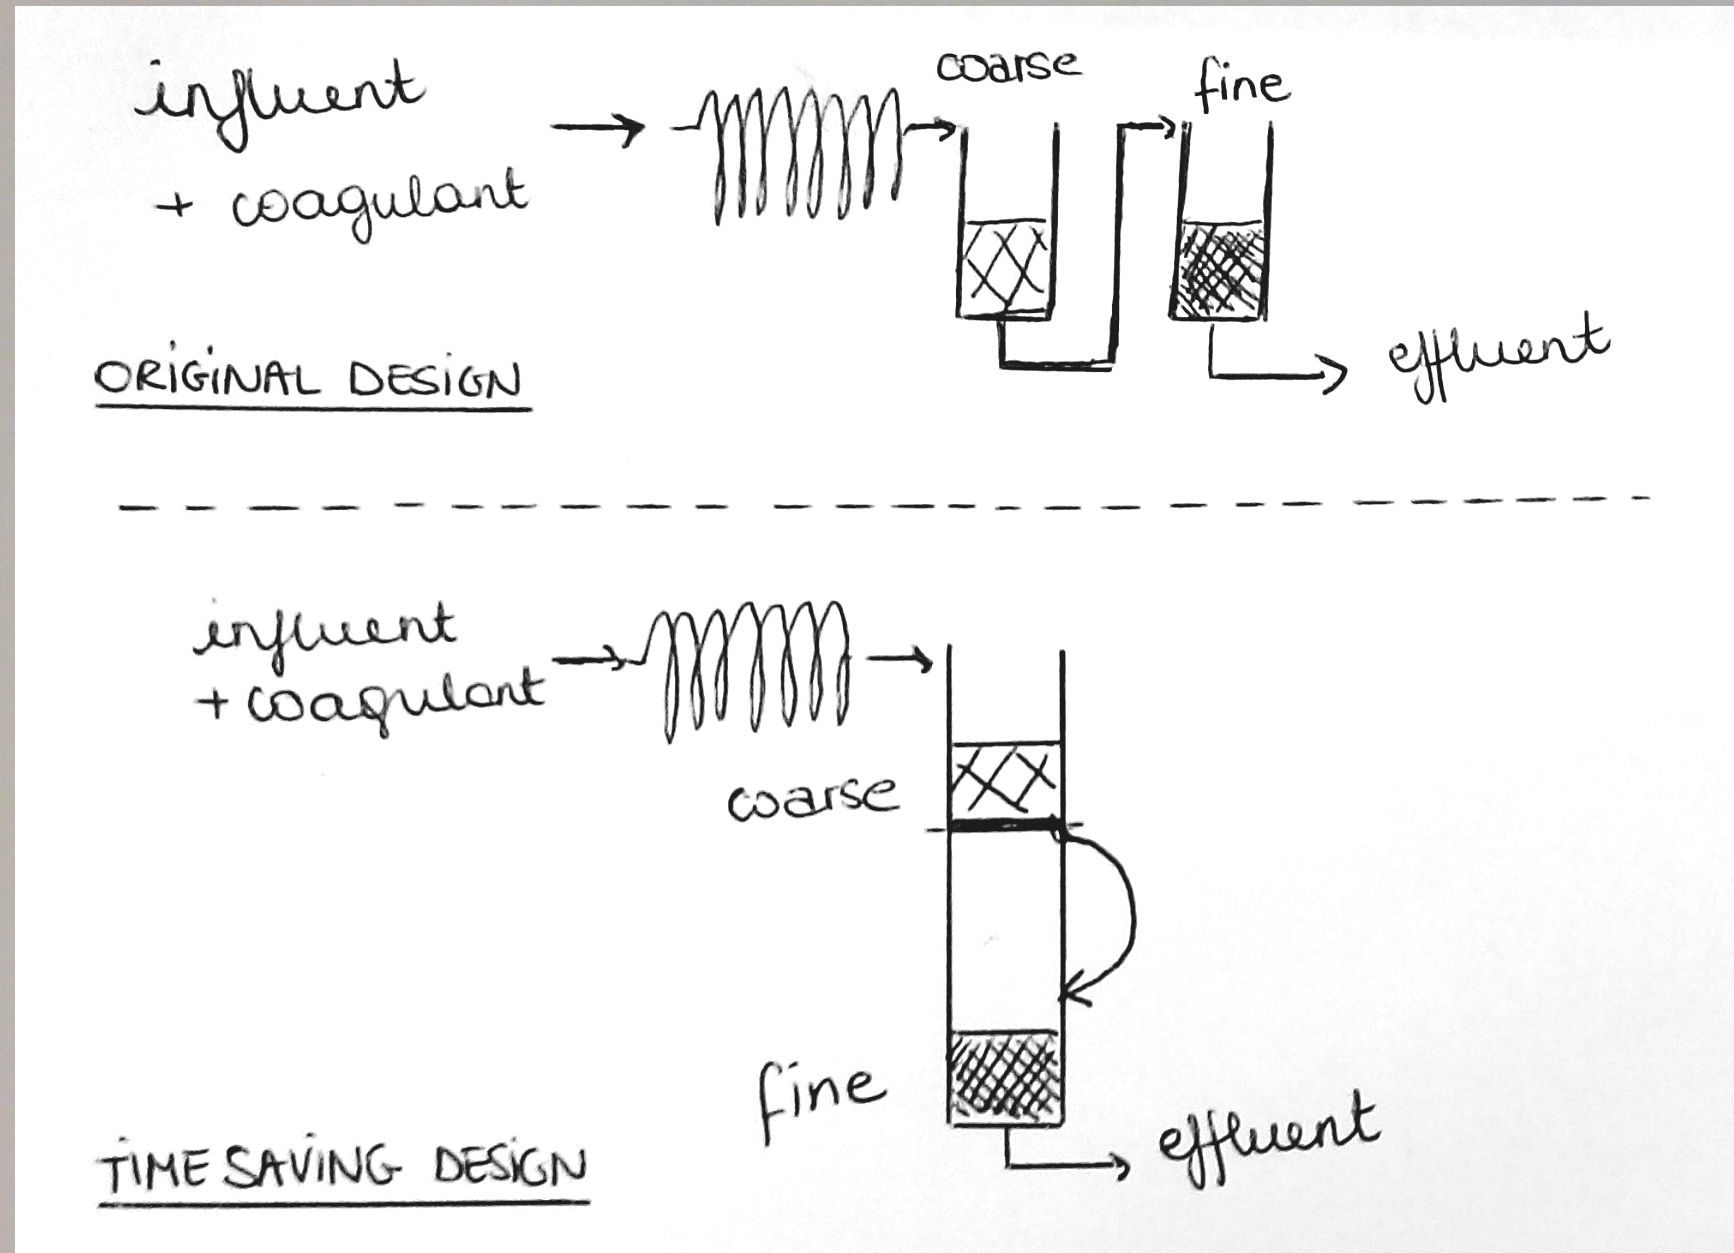 influent
+ coagulant
coarse
fine
effluent
ORIGINAL DESIGN
influent
+ coagulant
coarse
fine
effluent
TIME SAVING DESIGN